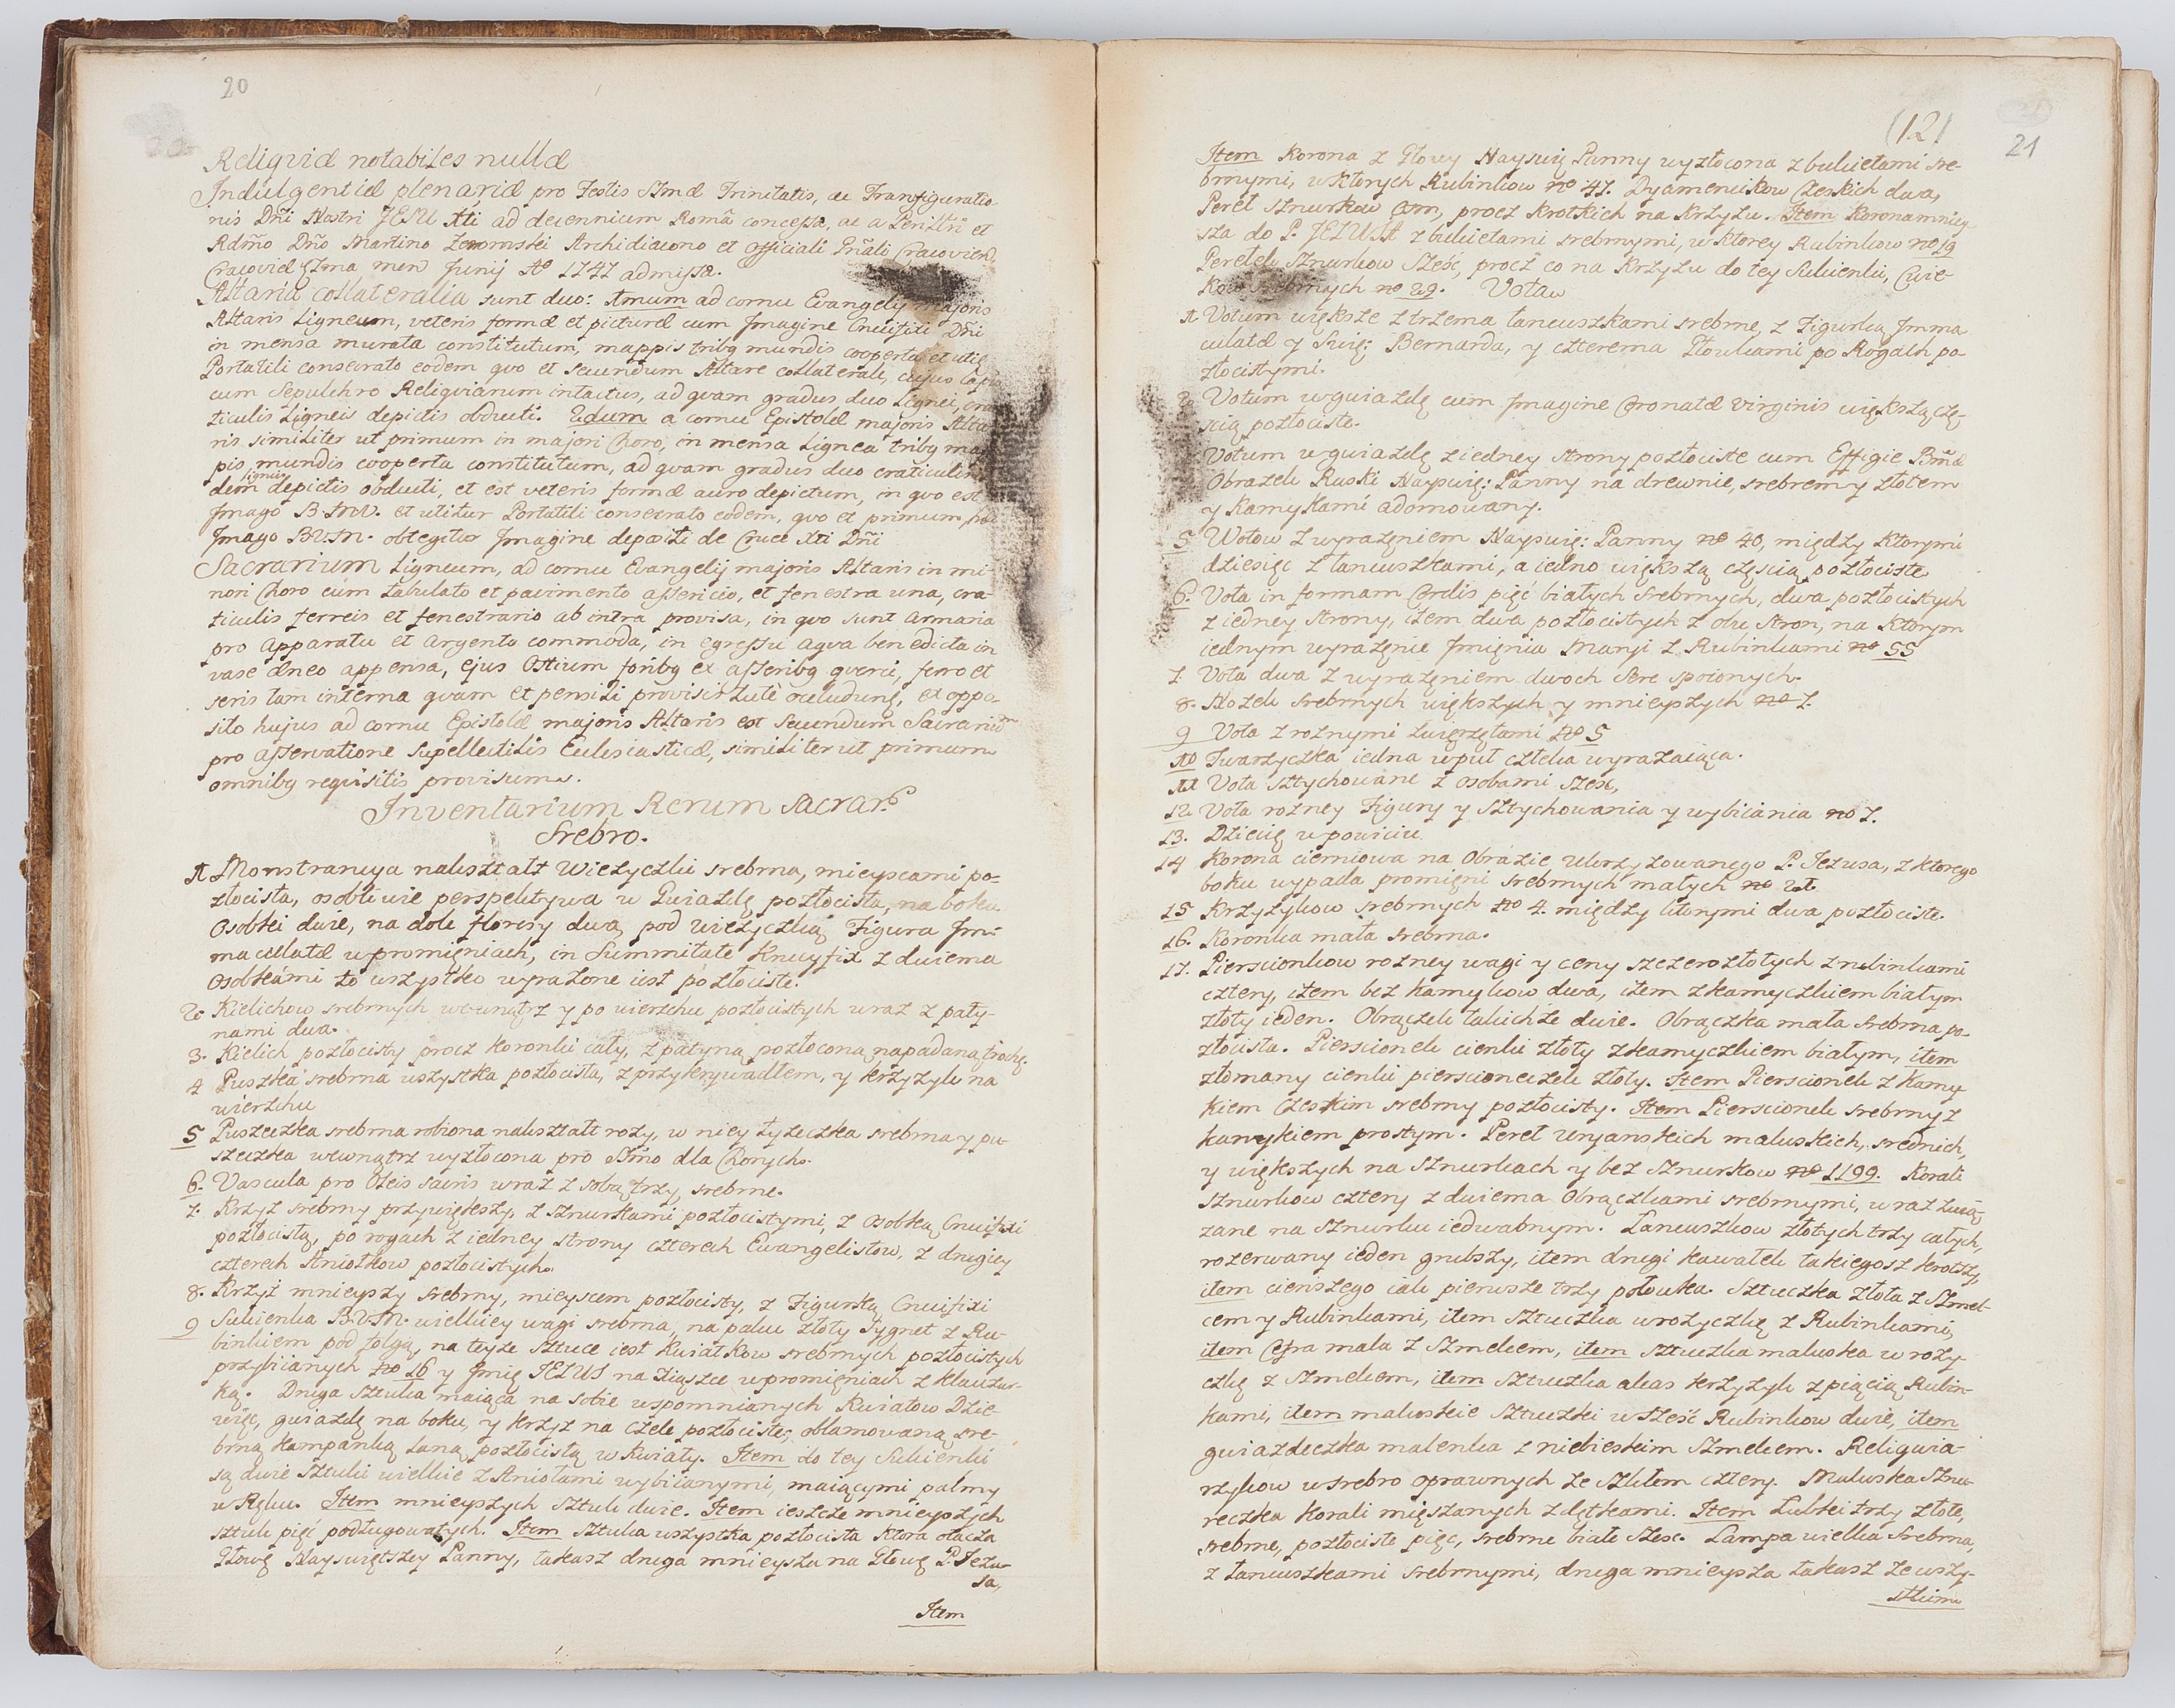 20
Reliqviæ notabiles nullæ
Indulgentiæ plenariæ pro Festis SSmæ Trinitatis, ac Transfiguratio
nis Dñi Nostri JESU Xti ad decennium Româ concessæ, ac a Perillri et
Rdmo Dño Martino Zeromski Archidiacono et officiali Gñali Cracovien
Cracoviæ 9. Ima men Junij Ao 1747 admissæ.
Altaria collateralia sunt duo: 1mum ad cornu Evangelij majoris
Altaris Ligneum, veteris formæ et picturæ cum Imagine Crucifixi Dñi
in mensa murata constitutum, mappis tribq mundis cooperta et utit
Portatili consecrato eodem quo et secundum Altare collaterale, cujus lapis
cum Sepulchro Reliqviarum intactus, ad qvam gradus duo Lignei, cra
ticulis Ligneis depictis obducti. 2dum a cornu Epistolæ majoris Alta
ris similiter ut primum in majori Choro, in mensa Lignea tribq map
pis mundis cooperta constitutum, ad qvam gradus duo craticulis
ligneis
dem depictis obducti, et est veteris formæ auro depictum, in qvo est
Imago B.V.M. et utitur Portatili consecrato eodem, qvo et primum, hæc
Imago B.V.M. obtegitur Imagine depositi de Cruce Xti Dñi
Sacrarium Ligneum, ad cornu Evangelij majoris Altaris in mi
nori Choro cum tabulato et pavimento assericio, et fenestra una, cra
ticulis ferreis et fenestrario ab intra provisa, in qvo sunt armaria
pro apparatu et argento commoda, in egressu aqva benedicta in
vase æneo appensa, ejus Ostium foribq ex asseribq qverci, ferro et
seris tam interna qvam et pensili provisis tutè occluduntr, ex oppo-
sito hujus ad cornu Epistolæ majoris Altaris est Secundum Sacrariū
pro asservatione Supellectilis Ecclesiasticæ, similiter ut primum
omnibq reqvisitis provisum.
Inventarium Rerum Sacrar.
Srebro.
1 Monstrancya nakształt Wieżyczki srebrna, mieyscami po=
złocista, osobliwie perspektywa w Gwiazdę pozłocista, na boku
Osobki dwie, na dole floresy dwa, pod wieżyczką Figura Im=
maculatæ w promięniach, in Summitate Krucyfix z dwiema
Osobkámi to wszystko wyrażone iest pozłociste.
2 Kielichow srebrnych wewnątrz y po wierzchu pozłocistych wraz z paty-
nami dwa.
3. Kielich pozłocisty procz koronki cały, z patyną pozłoconą napadaną trochę.
4 Puszka srebrna wszystka pozłocista, z przykrywadłem, y krzyżyk na
wierzchu
5 Puszeczka srebrna robiona nakształt roży, w niey łyżeczka srebrna y pu-
szeczka wewnątrz wyzłocona pro SSmo dla Chorych.
6. Vascula pro Oleis sacris wraz z sobą trzy, srebrne.
7. Krzyż srebrny przywiększy, z sznurkami pozłocistymi, z Osobką Crucifixi
pozłocistą, po rogach z iedney strony czterech Ewangelistow, z drugiey
czterech Aniołkow pozłocistych.
8. Krzyż mnieyszy srebrny, mieyscem pozłocisty, z Figurką Crucifixi
9 Sukienka B.V.M. wielkiey wagi srebrna, na palcu złoty Sygnet z Ru-
binkiem pod folgą, na teyże sztuce iest Kwiatkow srebrnych pozłocistych
przybiianych no 16 y Imię JEZUS na Ziąszce w promięniach z klauzur-
ką. Druga sztuka maiąca na sobie wspomnianych Kwiatow Dzie-
więc, gwiazdę na boku, y krzyż na czele pozłociste, oblamowaną sre-
brną kampanką laną pozłocistą w kwiaty. Item do tey Sukienki
są dwie sztuki wielkie z Aniołami wybiianymi, maiącymi palmy
w Ręku. Item mnieyszych sztuk dwie. Item ieszcze mnieyszych
sztuk pięć podługowatych. Item sztuka wszystka pozłocista ktora otacza
Głowę Nayswiętszey Panny, takasz druga mnieysza na Głowę P. Jezu-
sa,
Item
(12)
21
Item Korona z Głowy Nayswię Panny wyzłocona z bukietami sre-
brnymi, w ktorych Rubinkow no 47. Dyamencikow Czeskich dwa,
Pereł sznurkow osm, procz krotkich na krzyżu. Item Korona mniey-
sza do P. JEZUSA z bukietami srebrnymi, w ktorey Rubinkow no 19
Perełek Sznurkow Szesć, procz co na krzyżu do tey Sukienki, Cwie-
kow srebrnych no 29. Vota
1 Votum większe z trzema łancuszkami srebrne, z Figurką Imma
culatæ y Swię: Bernarda, y czterema Głowkami po Rogach po-
złocistymi.
Votum w gwiazdę cum Imagine Coronatæ Virginis większą czę-
scią pozłociste.
Votum w gwiazdę z iedney strony pozłociste cum Effigie Bmæ
Obrazek Ruski Nayswię: Panny na drewnie, srebrem y złotem
y kamykami adornowany.
5 Wotow z wyrażęniem Nayswię: Panny no 40, między ktorymi
dziesięc z łancuszkami, a iedno większą częscią pozłociste
6. Vota in formam Cordis pięć białych srebrnych, dwa pozłocistych
z iedney strony, item dwa pozłocistych z obu stron, na ktorym
iednym wyrażęnie Imięnia Maryi z Rubinkami no 55
7. Vota dwa z wyrażęniem dwoch Serc spoionych.
8. Nożek srebrnych większych y mnieyszych no 7.
9 Vota z rożnymi zwięrzętami no 5
10 Twarzyczka iedna w puł człeka wyrażaiąca.
11 Vota sztychowane z osobami szesc,
12 Vota rożney Figury y sztychowania y wybiiania no 7.
13. Dziecię w powiciu
14 Korona cierniowa na Obrazie Ukrzyżowanego P. Jezusa, z ktorego
boku wypada promięni srebrnych małych no 21
15 Krzyżykow srebrnych no 4. między ktorymi dwa pozłociste.
16. Koronka mała srebrna.
17. Pierscionkow rożney wagi y ceny szczerozłotych z rubinkami
cztery, item bez kamykow dwa, item z kamyczkiem białym
złoty ieden. Obrączek takichże dwie. Obrączka mała srebrna po-
złocista. Pierscionek cienki złoty z kamyczkiem białym, item
złomany cienki pierscioneczek złoty. Item Pierscionek z kamy-
kiem Czeskim srebrny pozłocisty. Item Pierscionek srebrny z
kamykiem prostym. Pereł uryanskich maluskich, srednich,
y większych na sznurkach y bez sznurkow no 1199. Korali
sznurkow cztery z dwiema Obrączkami srebrnymi, wraz zwią-
zane na sznurku iedwabnym. Łancuszkow złotych trzy całych,
rozerwany ieden grubszy, item drugi kawałek takiegosz krotszy,
item cieńszego iak pierwsze trzy połowka. Sztuczka złota z Szmel-
cem y Rubinkami, item sztuczka w rożyczkę z Rubinkami,
item Cyfra mała z Szmelcem, item sztuczka maluska w roży-
czkę z Szmelcem, item Sztuczka alias krzyżyk z piącią Rubin-
kami, item maluskie sztuczki w Szesć Rubinkow dwie, item
gwiazdeczka malenka z niebieskim Szmelcem. Religwia-
rzykow w srebro oprawnych ze szkłem cztery. Maluska sznu-
reczka korali mięszanych z dętkami. Item Lubki trzy złote,
srebrne, pozłociste pięc, srebrne białe szesc. Lampa wielka srebrna,
z łancuszkami srebrnymi, druga mnieysza takasz ze wszy-
stkim